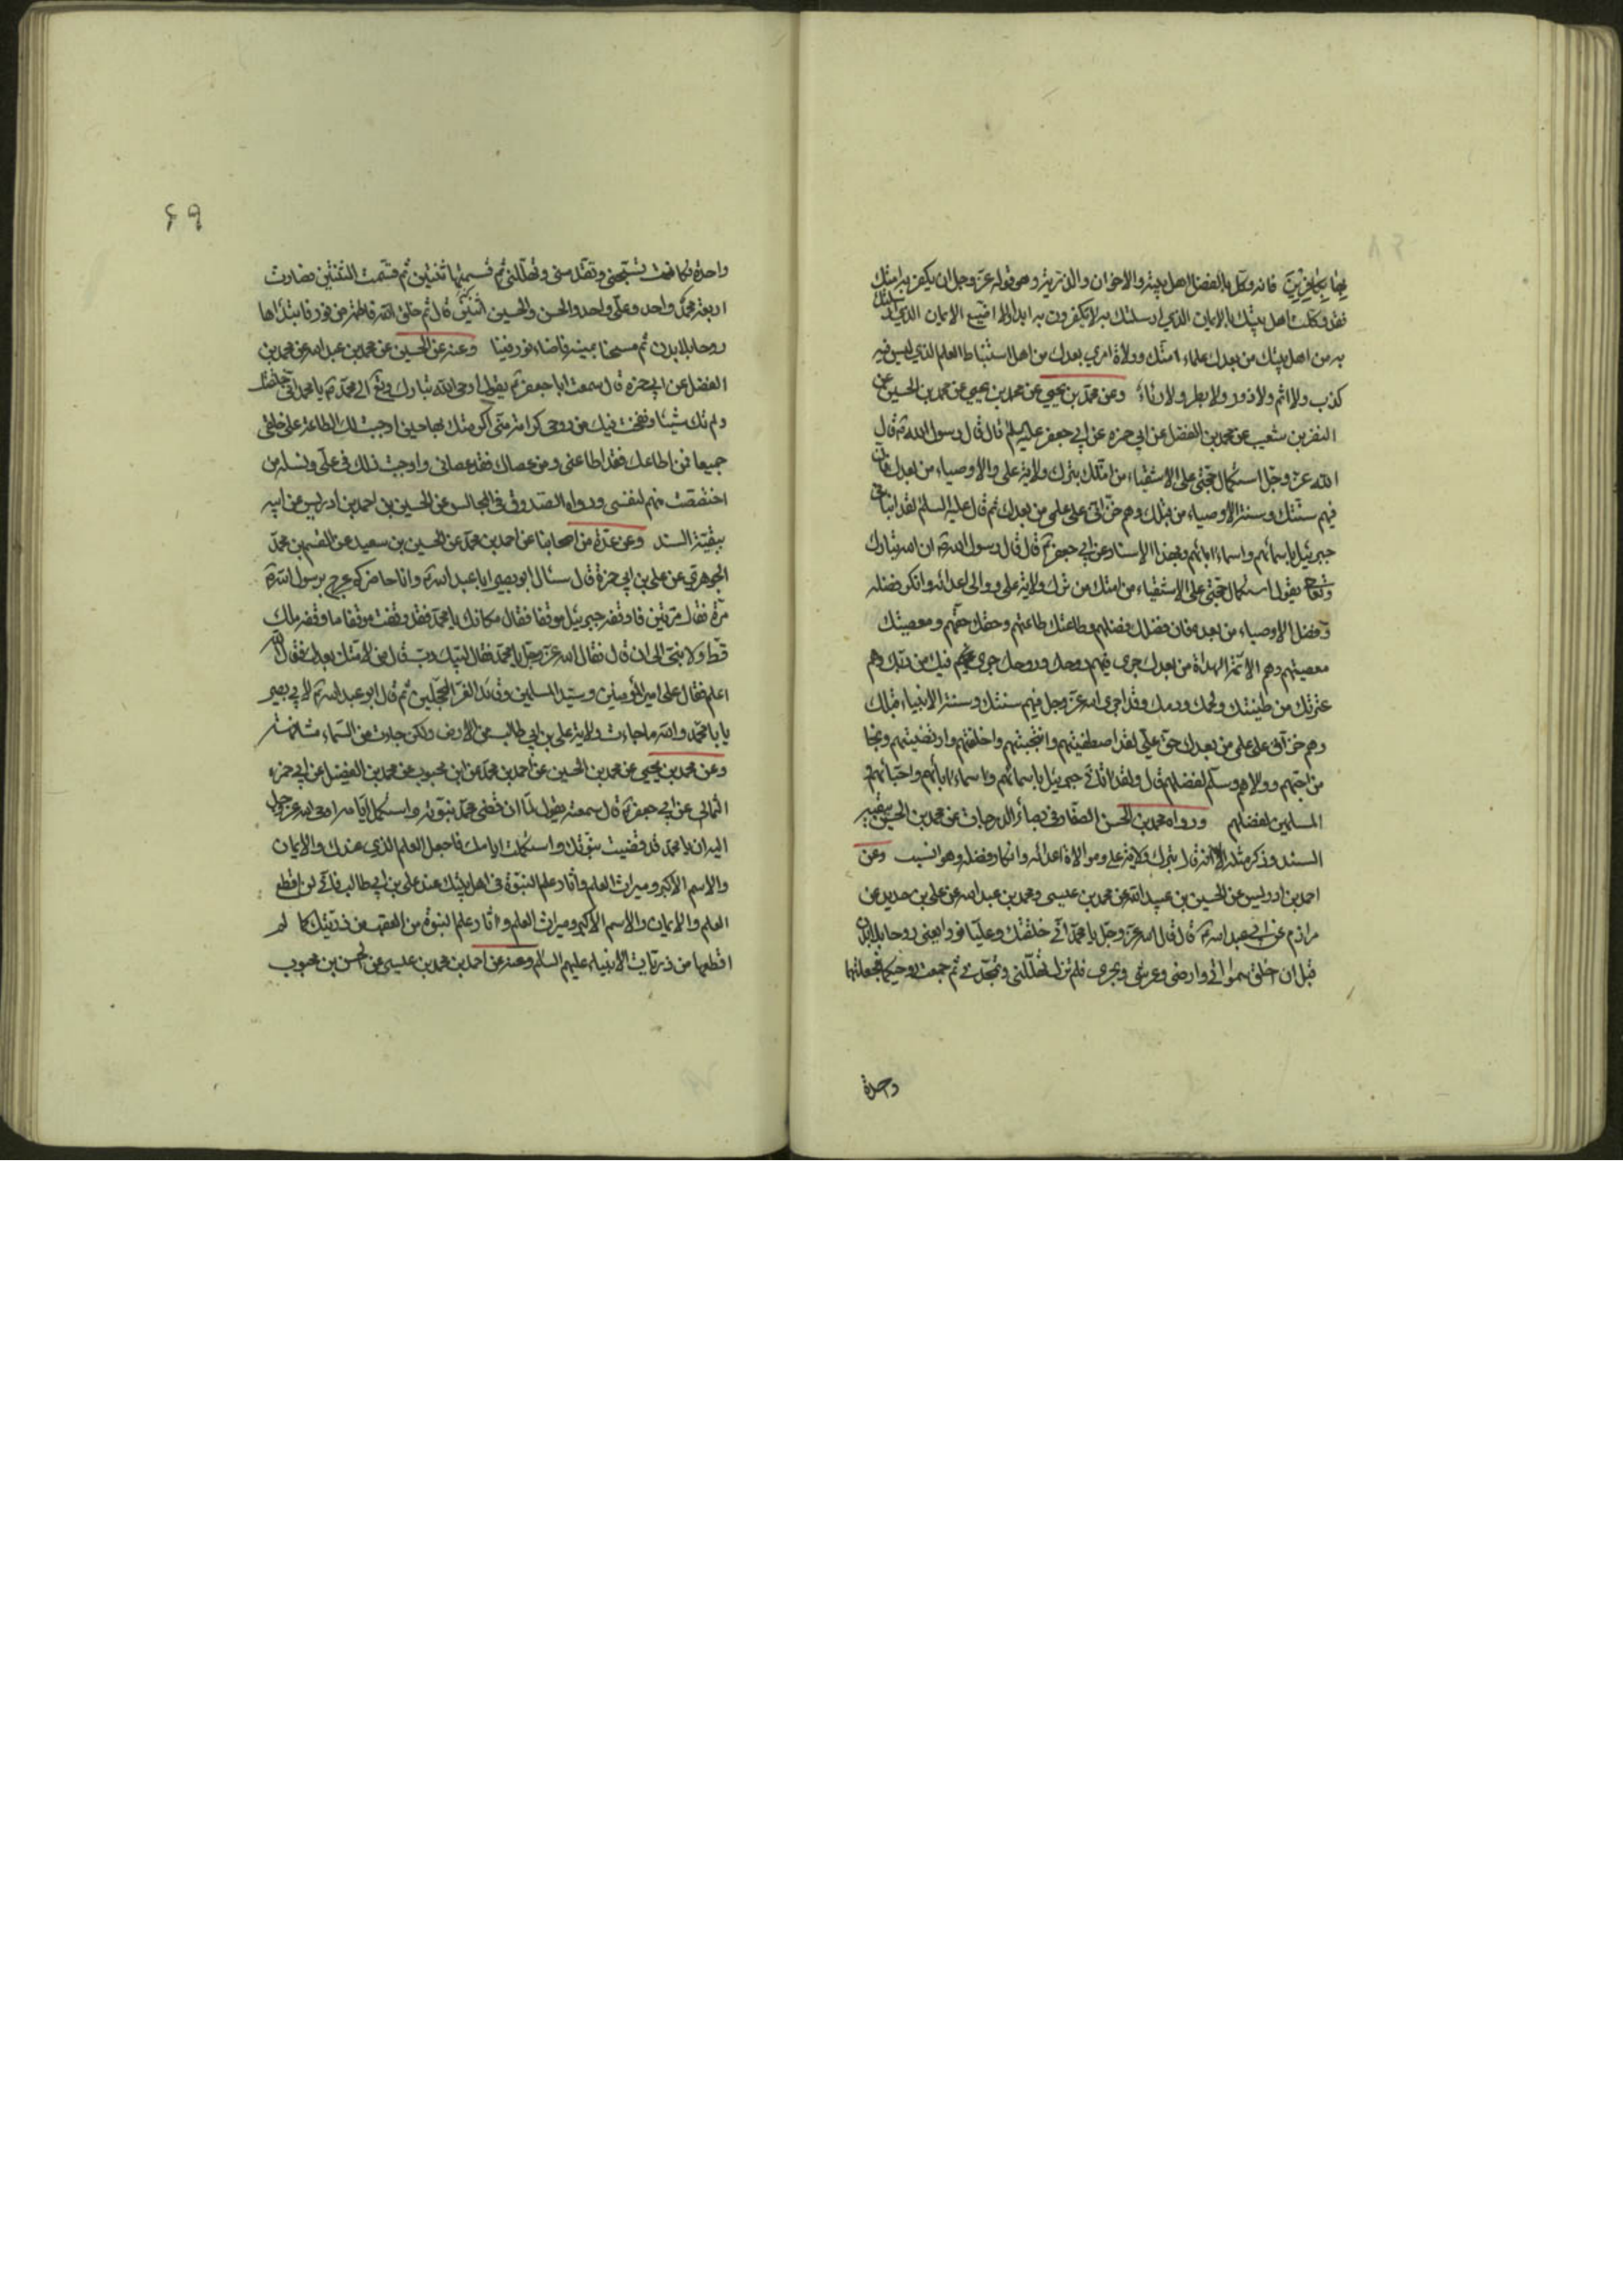 بِهَا بِكَافِرِينَ فانه وكل بالفضل من اهل بيته والاخوان والذرية وهو قوله عز وجل ان يكفر به امتك
فقد وكلت اهل بيتك بالايمان الذي ارسلتك به لا يكفرون به ابدا ولا اضيع الايمان الذي ارسلتك
به من اهل بيتك من بعدك علماء امتك وولاة امري بعدك من اهل استنباط العلم الذي ليس فيه
كذب ولا اثم ولا زور ولا بطر ولا رئاء وعن محمد بن يحيى عن محمد بن الحسين عن
النضر بن شعيب عن محمد بن الفضل عن ابي حمزه عن ابي جعفر عليه السلم قال قال رسول الله ص قال
الله عز وجل استكمال حجتي على الاشقياء من امتك بترك ولاية علي والاوصياء من بعدك فان
فيهم سنتك وسنة الاوصياء من قبلك وهم خزاني على علمي من بعدك ثم قال عليه السلم لقد انباني
جبرئيل باسمائهم واسماء ابائهم وبهذا الاسناد عن ابي جعفر ع قال قال رسول الله ص ان الله تبارك
وتعالى يقول استكمال حجتي على الاشقياء من امتك من ترك ولاية علي ووالى اعدائه وانكر فضله
وفضل الاوصياء من بعده فان فضلك فضلهم وطاعتك طاعتهم وحقك حقهم ومعصيتك
معصيتهم وهم الائمة الهداة من بعدك جرى فيهم روحك وروحك جرى فيك من ربك وهم
عترتك من طينتك ولحمك ودمك وقد اجرى الله عز وجل فيهم سنتك وسنة الانبياء قبلك
وهم خزاني على علمي من بعدك حق علي لقد اصطفيتهم وانتجبتهم واخلصتهم وارتضيتهم ونجا
من احبهم ووالاهم وسلم لفضلهم قال ولقد اتاني جبرئيل باسمائهم واسماء ابائهم واحبائهم و
المسلمين لفضلهم ورواه محمد بن الحسن الصفار في بصائر الدرجات عن محمد بن الحسين ببقية
السند وذكر مثله الا انه قال بترك ولاية علي وموالاة اعدائه وانكار فضله وهو انسب وعن
احمد بن ادريس عن الحسين بن عبيد الله عن محمد بن عيسى ومحمد بن عبد الله عن علي بن حديد عن
مرازم عن ابي عبد الله ع قال قال الله عز وجل يا محمد اني خلقتك وعليا نورا يعني روحا بلا بدن
قبل ان اخلق سمواتي وارضي وعرشي وبحري فلم تزل تهللني وتمجدني ثم جمعت روحيكما فجعلتهما
واحدة
۶۹
واحدة فكانت تسبحني وتقدسني وتهللني ثم قسمتها ثنتين ثم قسمت الثنتين فصارت
اربعة محمد واحد وعلي واحد والحسن والحسين اثنتين قال ثم خلق الله فاطمة من نور فابتداها
روحا بلا بدن ثم مسحنا بيمينه فاضاء نوره فينا وعنه عن الحسين عن محمد بن عبد الله عن محمد بن
الفضل عن ابي حمزه قال سمعت ابا جعفر ع يقول اوحى الله تبارك وتع الى محمد ص يا محمد اني خلقتك
ولم تك شيئا ونفخت فيك من روحي كرامة مني اكرمتك بها حين اوجبت لك الطاعة على خلقي
جميعا فمن اطاعك فقد اطاعني ومن عصاك فقد عصاني واوجبت ذلك في علي ونسله من
اختصصت منهم لنفسي ورواه الصدوق في المجالس عن الحسين بن احمد بن ادريس عن ابيه
ببقية السند وعن عدة من اصحابنا عن احمد بن محمد عن الحسين بن سعيد عن القسم بن محمد
الجوهري عن علي بن ابي حمزة قال سئل ابو بصير ابا عبد الله ع وانا حاضر كم عرج برسول الله ص
مرة فقال مرتين فاوقفه جبرئيل موقفا فقال مكانك يا محمد فقد وقفت موقفا ما وقفه ملك
قط ولا نبي الى ان قال فقال الله عز وجل يا محمد فقال لبيك رب قال من لامتك بعدك فقال الله
اعلم فقال علي امير المؤمنين وسيد المسلمين وقائد الغر المحجلين ثم قال ابو عبد الله ع لابي بصير
يا با محمد والله ما جاءت ولاية علي بن ابي طالب من الارض ولكن جاءت من السماء مشافهة
وعن محمد بن يحيى عن محمد بن الحسين عن احمد بن محمد عن ابن محبوب عن محمد بن الفضيل عن ابي حمزه
الثمالي عن ابي جعفر ع قال سمعته يقول لما ان قضى محمد نبوته واستكمل ايامه اوحى الله عز وجل
اليه ان يا محمد قد قضيت نبوتك واستكملت ايامك فاجعل العلم الذي عندك والايمان
والاسم الاكبر وميراث العلم واثار علم النبوة في اهل بيتك عند علي بن ابي طالب فاني لن اقطع
العلم والايمان والاسم الاكبر وميراث العلم واثار علم النبوة من العقب من ذريتك كما لم
اقطعها من ذريات الانبياء عليهم السلم وعنه عن احمد بن محمد بن عيسى عن الحسن بن محبوب